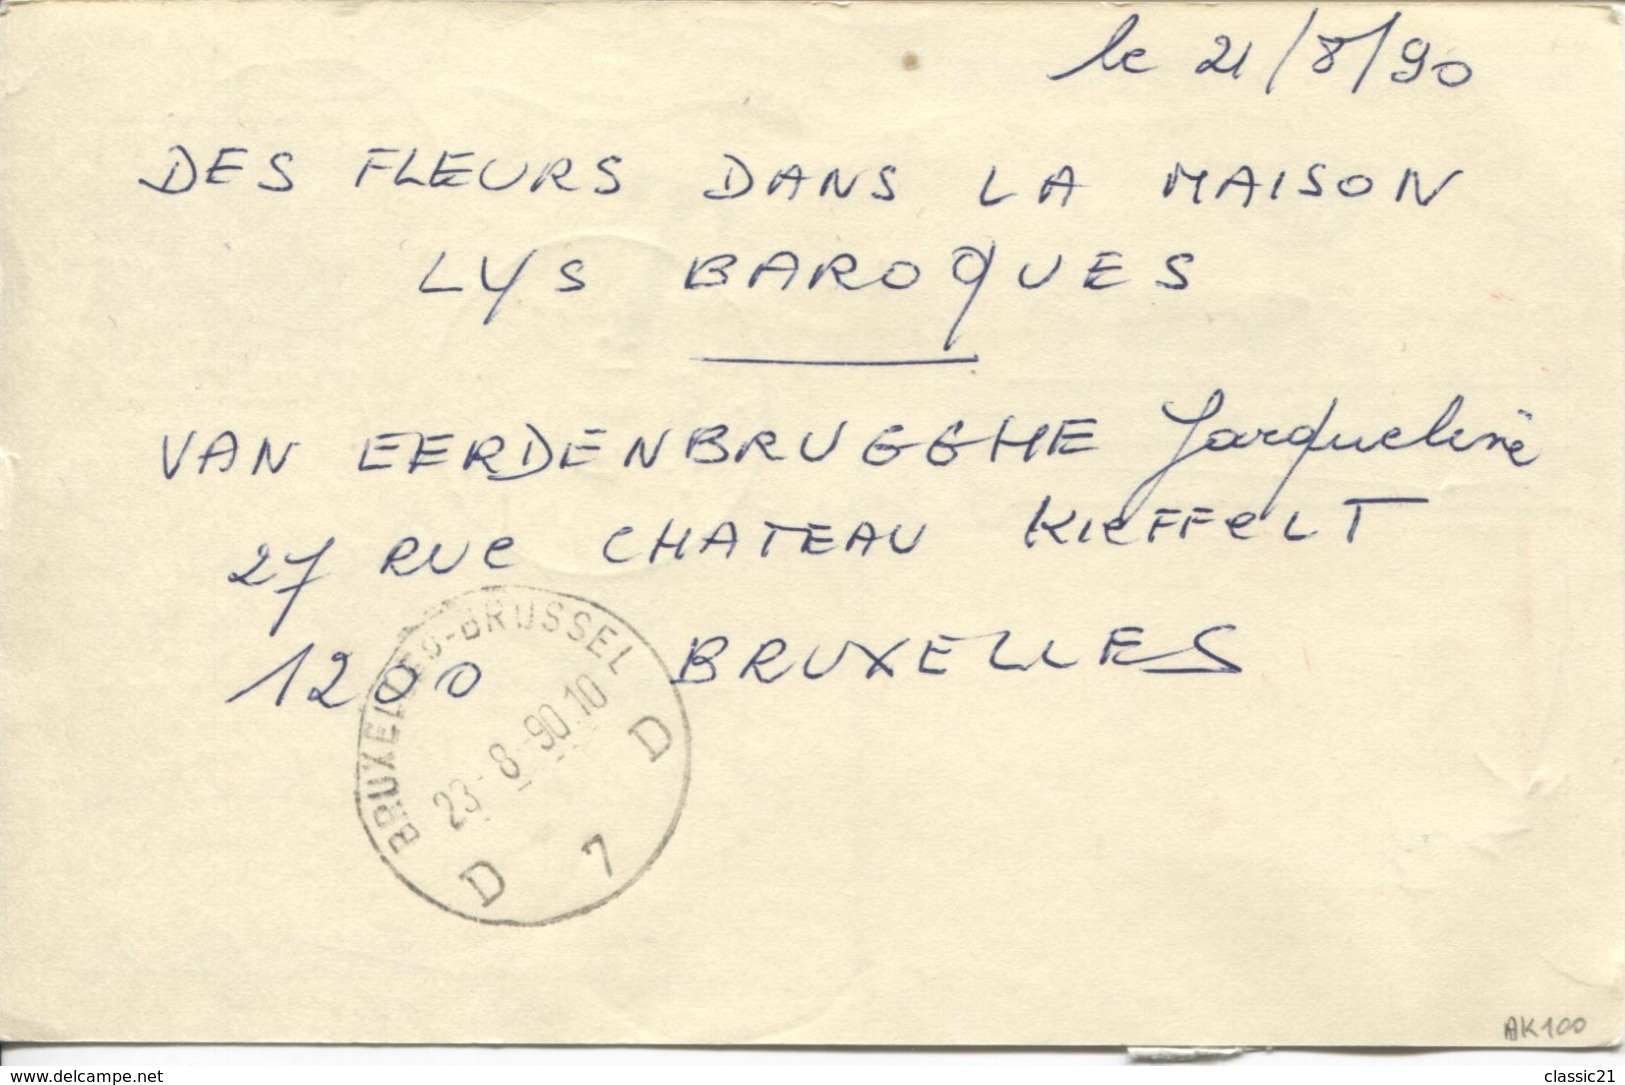 le 21/8/90
DES FLEURS DANS LA MAISON
LYS BAROQUES
VAN EERDENBRUGGHE Jacqueline
27 RUE CHATEAU KIEFFELT
1200 BRUXELLES
BRUXELLES-BRUSSEL
23-8-90.10
D 7 D
AK100
www.delcampe.net
classic21